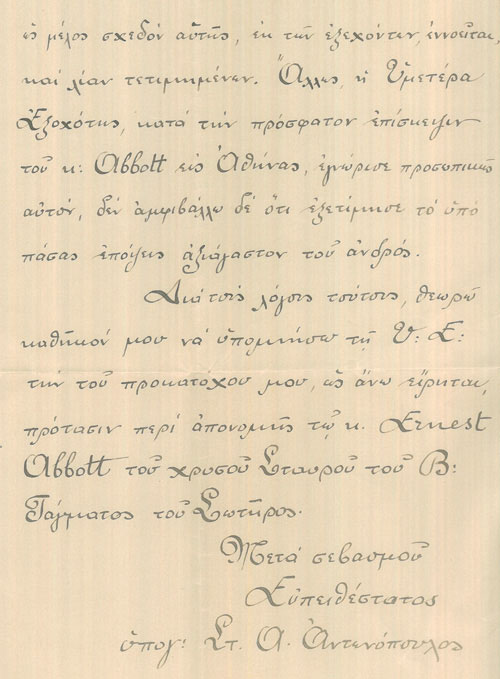 ὡς μέλος σχεδὸν αὐτῆς, ἐκ τῶν ἐξεχόντων, ἐννοεῖται,
καὶ λίαν τετιμημένων. Ἄλλως, ἡ Ὑμετέρα
Ἐξοχότης, κατὰ τὴν πρόσφατον ἐπίσκεψιν
τοῦ κ: Abbott εἰς Ἀθήνας, ἐγνώρισε προσωπικῶς
αὐτόν, δὲν ἀμφιβάλλω δὲ ὅτι ἐξετίμησε τὸ ὑπὸ
πάσας ἐπόψεις ἀξιάγαστον τοῦ ἀνδρός.
Διὰ τοὺς λόγους τούτους, θεωρῶ
καθῆκόν μου νὰ ὑπομνήσω τῇ Υ: Ε:
τὴν τοῦ προκατόχου μου, ὡς ἄνω εἴρηται,
πρότασιν περὶ ἀπονομῆς τῷ κ. Ernest
Abbott τοῦ χρυσοῦ Σταυροῦ τοῦ Β:
Τάγματος τοῦ Σωτῆρος.
Μετὰ σεβασμοῦ
Εὐπειθέστατος
ὑπογ: Στ. Α. Ἀντωνόπουλος